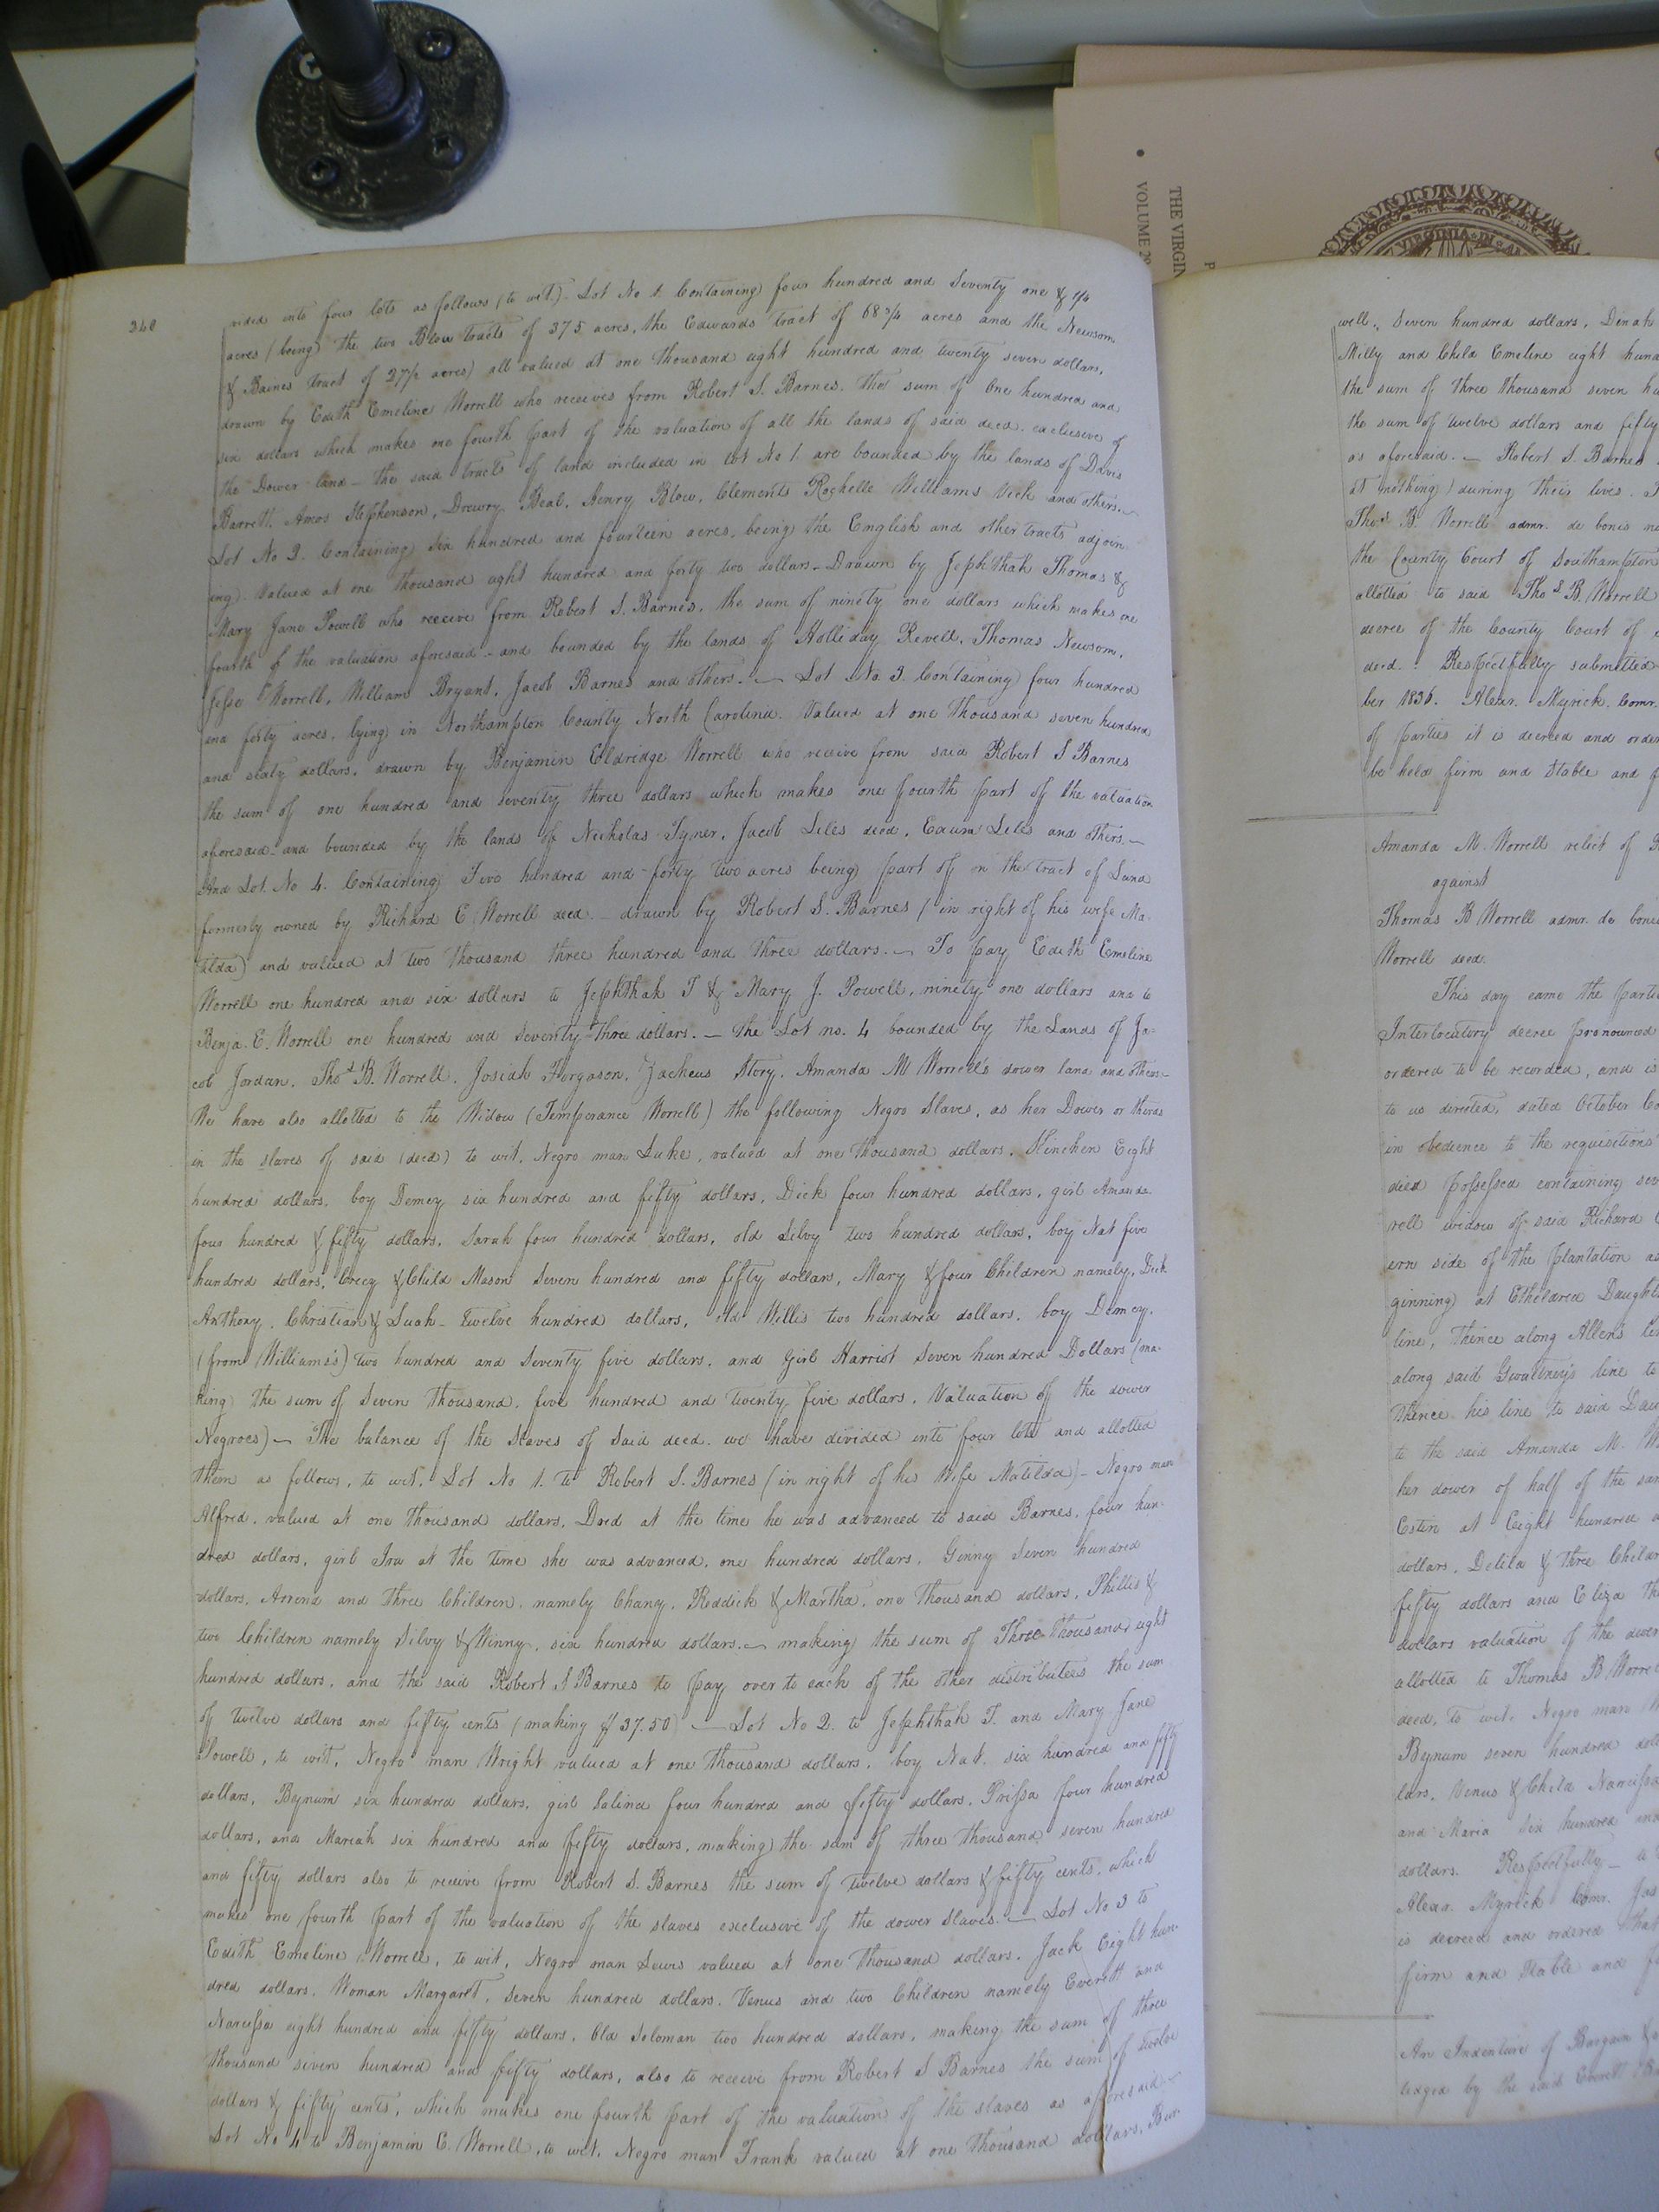 240
vided into four lots as follows (to wit.) Lot No 1. Containing four hundred and Seventy one & 1/4
acres (being the two Blow tracts of 375 acres, the Edwards tract of 68 3/4 acres and the Newsom
& Barnes tract of 27½ acres) all valued at one thousand eight hundred and twenty seven dollars,
drawn by Edith Emeline Worrell who receives from Robert S. Barnes. the sum of One hundred and
six dollars which makes one fourth part of the valuation of all the lands of said decd. exclusive of
the Dower land – the said tracts of land included in lot No 1. are bounded by the lands of Davis
Barrett. Amos Stephenson, Drewry Beal, Henry Blow, Clements Rochelle Williams Vick and others. –
Lot No 2. Containing six hundred and fourteen acres, being the English and other tracts adjoin
ing. Valued at one thousand eight hundred and forty two dollars – Drawn by Jephthah Thomas &
Mary Jane Powell who receive from Robert S. Barnes, the sum of ninety one dollars which makes one
fourth of the valuation aforesaid – and bounded by the lands of Holliday Revell, Thomas Newsom,
Jesse Worrell, William Bryant, Jacob Barnes and others. — Lot No. 3. Containing four hundred
and forty acres, lying in Northampton County North Carolina. Valued at one thousand seven hundred
and sixty dollars, drawn by Benjamin Eldridge Worrell who receive from said Robert S Barnes
the sum of one hundred and seventy three dollars which makes one fourth part of the valuation
aforesaid – and bounded by the lands of Nicholas Tyner, Jacob Liles decd, Liles and others. –
And Lot. No 4. Containing Two hundred and forty two acres being part of on the tract of Land
formerly owned by Richard E Worrell decd. – drawn by Robert S. Barnes (in right of his wife Ma-
tilda) and valued at two thousand three hundred and three dollars. — To pay Edith Emeline
Worrell one hundred and six dollars to Jephthah T & Mary J. Powell, ninety one dollars and to
Benja. E. Worrell one hundred and seventy-three dollars. — the Lot no. 4 bounded by the Lands of Ja-
cob Jordan, Thos B. Worrell, Josiah Forgason, Zacheus Story. Amanda M Worrell's dower land and others –
We have also allotted to the Widow (Temperance Worrell) the following Negro Slaves, as her Dower or thirds
in the slaves of said (decd) to wit, Negro man Luke, valued at one thousand dollars, Kinchen Eight
hundred dollars, boy Demcy six hundred and fifty dollars, Dick four hundred dollars, girl Amanda
four hundred & fifty dollars, Sarah four hundred dollars, old Silvy two hundred dollars, boy Nat five
hundred dollars, Creecy & Child Mason Seven hundred and fifty dollars, Mary & four Children namely, Dick
Anthony, Christian & Suah – twelve hundred dollars, old Willis two hundred dollars, boy Demcy,
(from Williams's) two hundred and Seventy five dollars, and girl Harriot Seven hundred Dollars (ma-
king the sum of Seven thousand, five hundred and twenty five dollars, Valuation of the dower
Negroes) — The balance of the Slaves of Said decd. we have divided into four lots and allotted
them as follows, to wit, Lot No 1. to Robert S. Barnes (in right of his Wife Matilda) – Negro man
Alfred, valued at one thousand dollars, Dred at the time he was advanced to said Barnes, four hun-
dred dollars, girl Ira at the time she was advanced, one hundred dollars, Ginny Seven hundred
dollars, Arrena and three Children, namely Chany, Reddick & Martha, one thousand dollars, Phillis &
two Children namely Silvy & Winny, six hundred dollars. — making the sum of Three thousand eight
hundred dollars, and the said Robert S Barnes to pay over to each of the other distributees the sum
of twelve dollars and fifty cents (making $37.50) — Lot No 2. to Jephthah T. and Mary Jane
Powell, to wit, Negro man Wright valued at one thousand dollars, boy Nat. six hundred and fifty
dollars, Bynum six hundred dollars, girl Salina four hundred and fifty dollars, Prissa four hundred
dollars, and Mariah six hundred and fifty dollars, making the sum of three thousand seven hundred
and fifty dollars also to receive from Robert S. Barnes the sum of twelve dollars & fifty cents, which
makes one fourth part of the valuation of the slaves exclusive of the dower slaves. — Lot No 3 to
Edith Emeline Worrell, to wit, Negro man Lewis valued at one thousand dollars, Jack Eight hun-
dred dollars, Woman Margaret, seven hundred dollars. Venus and two Children namely Everett and
Narcissa eight hundred and fifty dollars, Old Soloman two hundred dollars, making the sum of three
thousand seven hundred and fifty dollars, also to receive from Robert S Barnes the sum of twelve
dollars & fifty cents, which makes one fourth part of the valuation of the slaves as aforesaid –
Lot No 4 to Benjamin E. Worrell, to wit, Negro man Frank valued at one thousand dollars,
well, Seven hundred dollars, Denah
Milly and Child Emeline eight
the sum of three thousand seven
the sum of twelve dollars and fifty
as aforesaid. — Robert S. Barnes
at nothing) during their lives.
Thos B. Worrell admr. de bonis
the County Court of Southampton
allotted to said Thos B. Worrell
decree of the County Court of
decd – Respectfully submitted
ber 1836. Alexr. Myrick. Comr.
of parties it is decreed and
be held firm and Stable and
Amanda M. Worrell relict of
against
Thomas B Worrell admr. de
Worrell decd.
This day came the
Interlocutory decree pronounced
ordered to be recorded, and is
to us directed, dated October
in obedience to the requisitions
died possessed containing
rell widow of said Richard
ern side of the plantation
ginning at Etheldred
line, thence along Allen's
along said Gwaltney's line to
thence his line to said
to the said Amanda M.
her dower of half of the
Estin at Eight hundred
dollars, Delila & three
fifty dollars and Eliza
dollars valuation of the
allotted to Thomas B
deed, to wit. Negro man
Bynum seven hundred
lars, Venus & Child
and Maria six hundred
dollars. Respectfully
Alexr. Myrick Comr.
is decreed and ordered that
firm and Stable and
An Indenture of Bargain
ledged by the said
THE VIRGIN
VOLUME 29
VIRGINIA